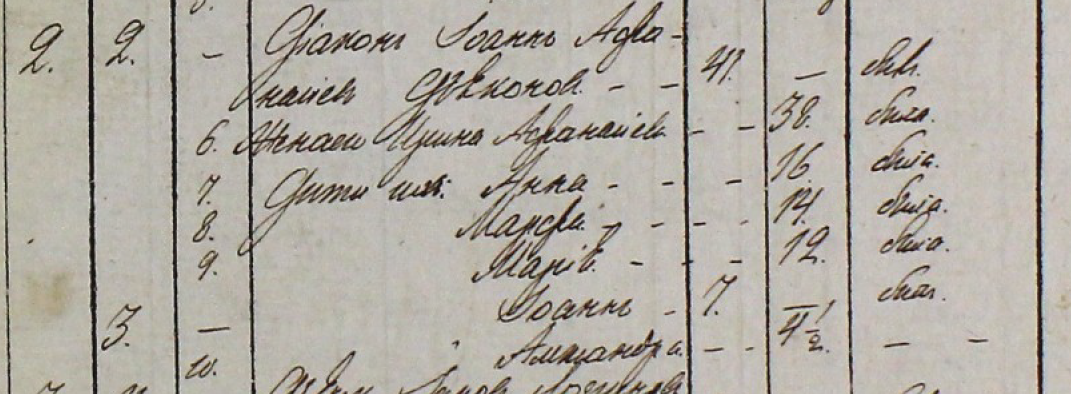 2. 2. — Діаконъ Іоаннъ Афа-
насіевъ Дьяконов. - - 41. — былъ.
6. Жена ег. Ирина Афанасіев. - - 38. была.
7. Дѣти ихъ: Анна - - - 16. была.
8. Марѳа. - - - 14. была.
9. Марія. - - - 12. была.
3. — Іоаннъ - 7. — былъ.
10. Александра. - - 4 1/2. — -